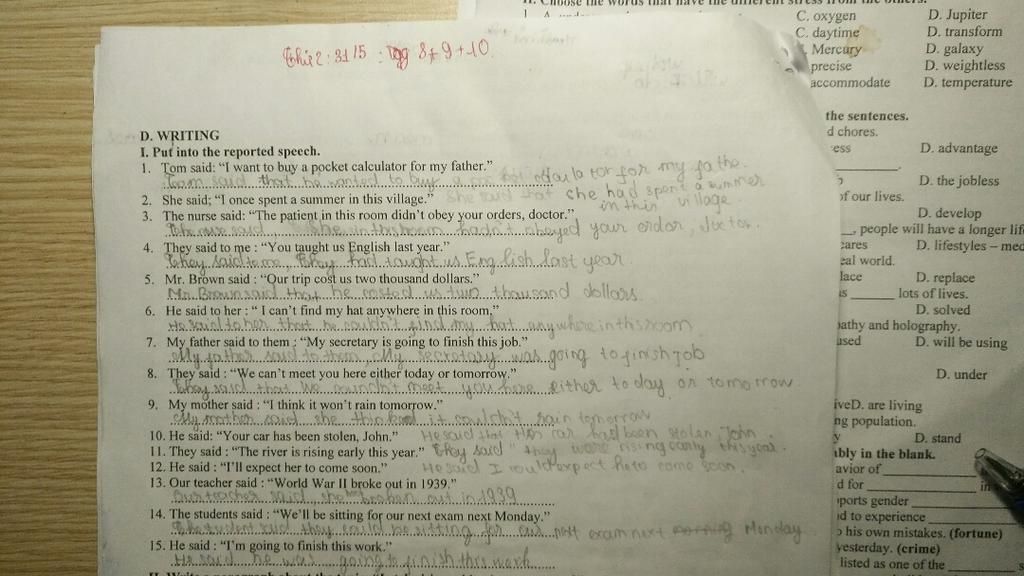 II. Choose the words that have the different stress from the others.
C. oxygen D. Jupiter
C. daytime D. transform
Mercury D. galaxy
precise D. weightless
accommodate D. temperature
8+9+10
D. WRITING
I. Put into the reported speech.
1. Tom said: “I want to buy a pocket calculator for my father.”
Tom said that he wanted to buy a for my fathe.
2. She said; “I once spent a summer in this village.” She said that she had spent a summer
in this village.
3. The nurse said: “The patient in this room didn’t obey your orders, doctor.”
in this room hadn't obeyed your order, doctor.
4. They said to me : “You taught us English last year.”
They said to me, They had taught us English last year.
5. Mr. Brown said : “Our trip cost us two thousand dollars.”
Mr. Brown said that he costed us two thousand dollars.
6. He said to her : “ I can’t find my hat anywhere in this room.”
He said to her that he couldn't find my hat anywhere in this room
7. My father said to them : “My secretary is going to finish this job.”
My father said to them, My secretary was going to finish job
8. They said : “We can’t meet you here either today or tomorrow.”
They said that We meet you here either today or tomorrow.
9. My mother said : “I think it won’t rain tomorrow.”
My mother said she it couldn't rain tomorrow
10. He said: “Your car has been stolen, John.” He said that car had been stolen John
11. They said : “The river is rising early this year.” They said they were rising early this year.
12. He said : “I’ll expect her to come soon.” He said I would expect to come soon.
13. Our teacher said : “World War II broke out in 1939.”
Our teacher said broken out in 1939
14. The students said : “We’ll be sitting for our next exam next Monday.”
said they could be sitting for our next exam next Monday
15. He said : “I’m going to finish this work.”
He said he was going to finish this work
the sentences.
d chores.
D. advantage
D. the jobless
of our lives.
D. develop
, people will have a longer life
D. lifestyles – med
eal world.
lace D. replace
s lots of lives.
D. solved
athy and holography.
used D. will be using
D. under
ive D. are living
ng population.
y D. stand
ably in the blank.
avior of
d for in
ports gender
d to experience
o his own mistakes. (fortune)
yesterday. (crime)
listed as one of the